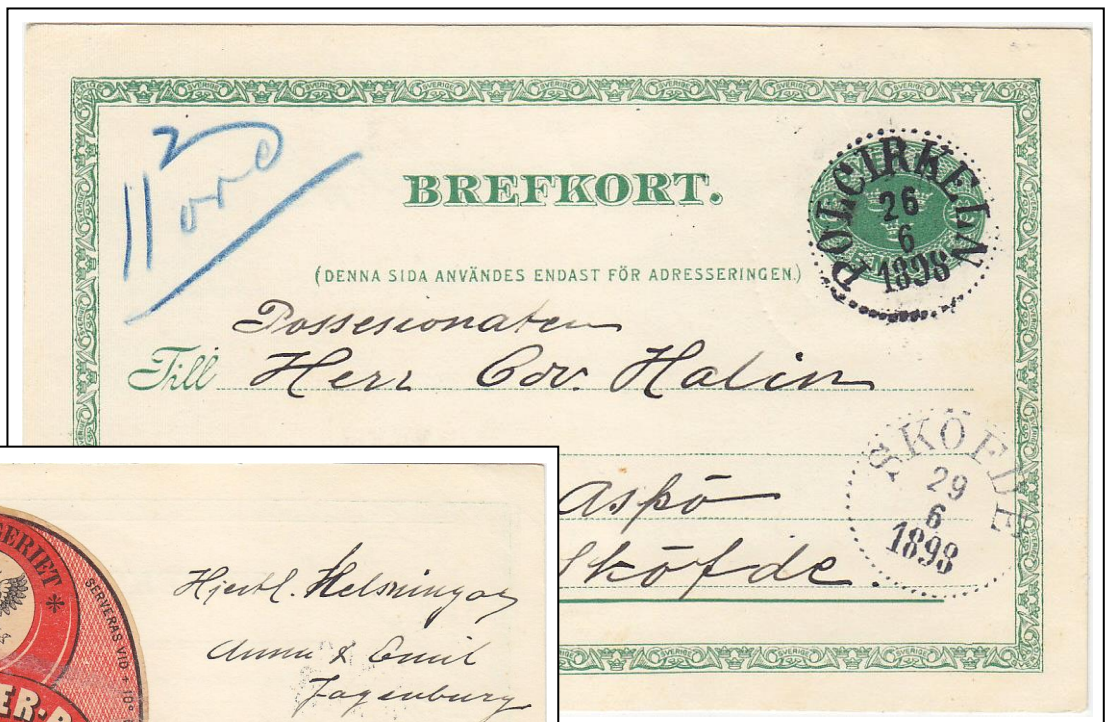 11 2 öre
BREFKORT.
POLCIRKELN
26
6
1898
(DENNA SIDA ANVÄNDES ENDAST FÖR ADRESSERINGEN.)
Possesionaten
Till Herr Edv. Halin
Aspö
Sköfde.
SKÖFDE
29
6
1898
GERIET *
SERVERAS VID + 10°
ER·
Hjertl. Helsningar
Anna & Emil
Fagenburg